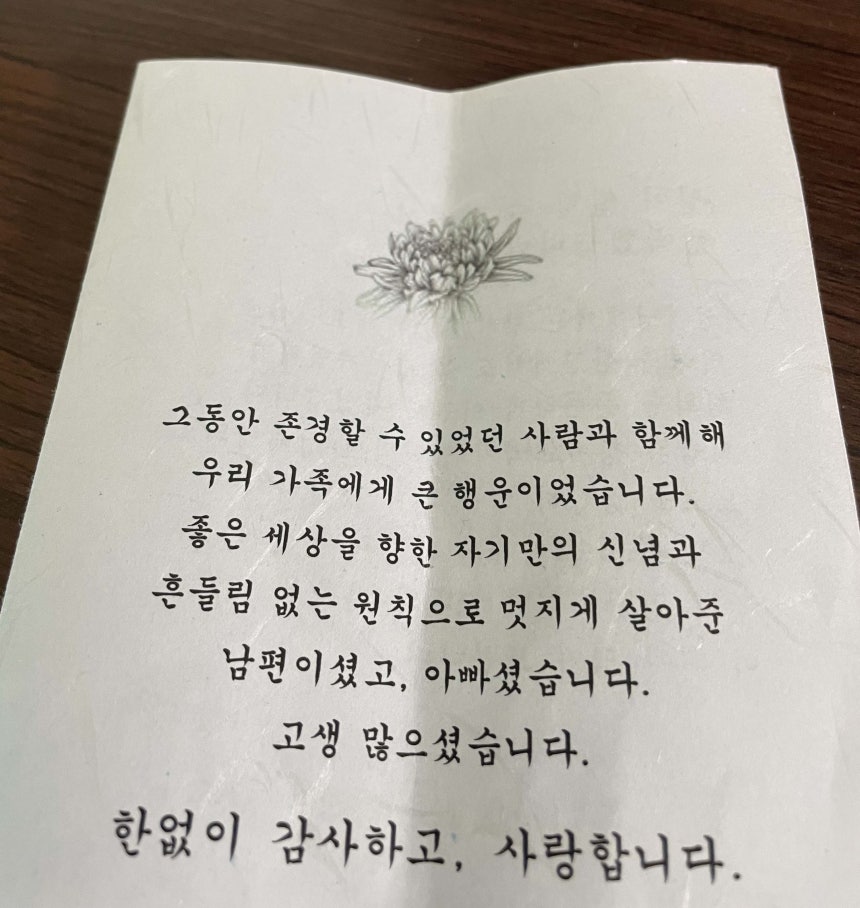 그동안 존경할 수 있었던 사람과 함께해
우리 가족에게 큰 행운이었습니다.
좋은 세상을 향한 자기만의 신념과
흔들림 없는 원칙으로 멋지게 살아준
남편이셨고, 아빠셨습니다.
고생 많으셨습니다.
한없이 감사하고, 사랑합니다.